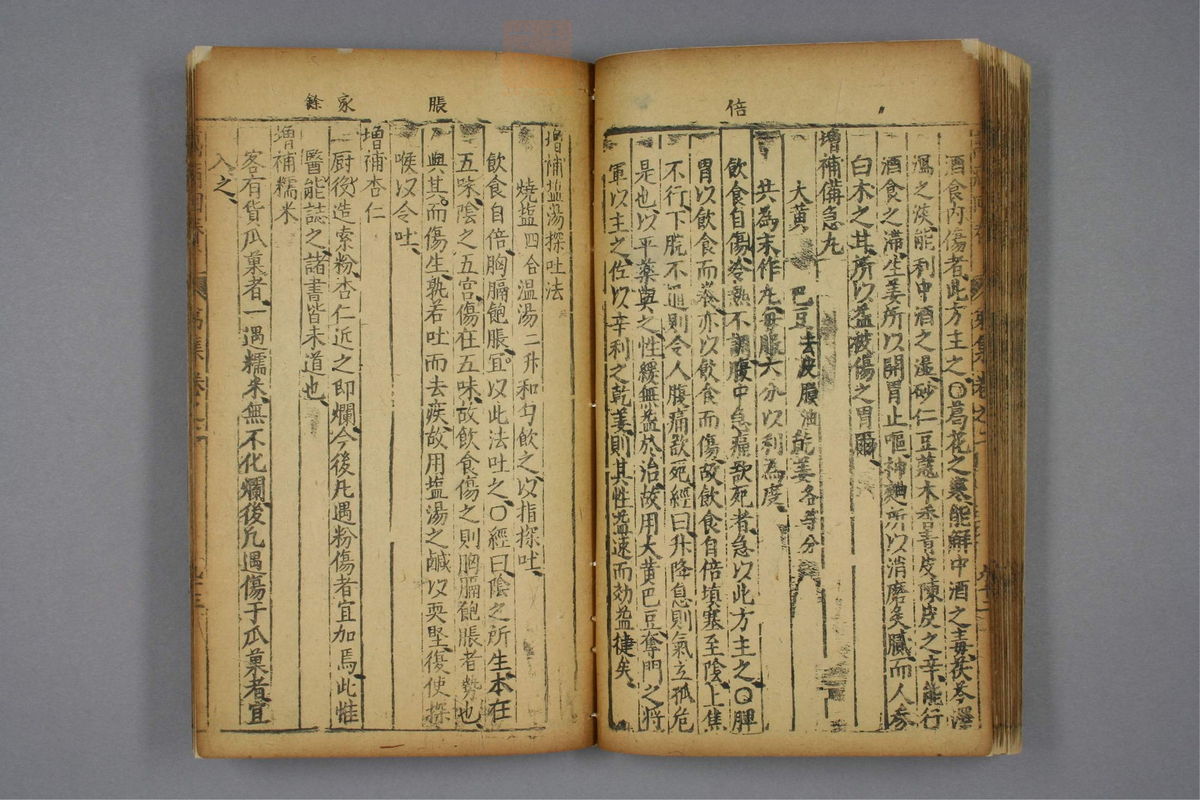 倍
酒食内傷者此方主之○葛花之寒能解中酒之毒茯苓澤
瀉之淡能利中酒之濕砂仁豆蔻木香青皮陳皮之辛能行
酒食之滯生姜所以開胃止嘔神麯所以消磨炙膩而人參
白木之甘所以益被傷之胃爾
增補備急丸
大黃 巴豆去皮膜油 乾姜各等分
共為末作丸每服六分以利為度
飲食自傷冷熱不調腹中急痛欲死者急以此方主之○脾
胃以飲食而養亦以飲食而傷故飲食自倍填塞至陰上焦
不行下脘不通則令人腹痛欲死經曰升降息則氣立孤危
是也以平藥與之性緩無益於治故用大黃巴豆奪門之將
軍以主之佐以辛利之乾姜則其性益速而効益捷矣
脹
家
餘
增補盐湯探吐法
燒盐四合温湯二升和勻飲之以指探吐
飲食自倍胸膈飽脹宜以此法吐之○經曰陰之所生本在
五味陰之五宫傷在五味故飲食傷之則胸膈飽脹者勢也
與其而傷生孰若吐而去疾故用盐湯之鹹以耎堅復使探
喉以令吐
增補杏仁
一厨役造索粉杏仁近之即爛今後凡遇粉傷者宜加焉此惟
醫能誌之諸書皆未道也
增補糯米
客有貨瓜菓者一遇糯米無不化爛後凡遇傷于瓜菓者宜
入之